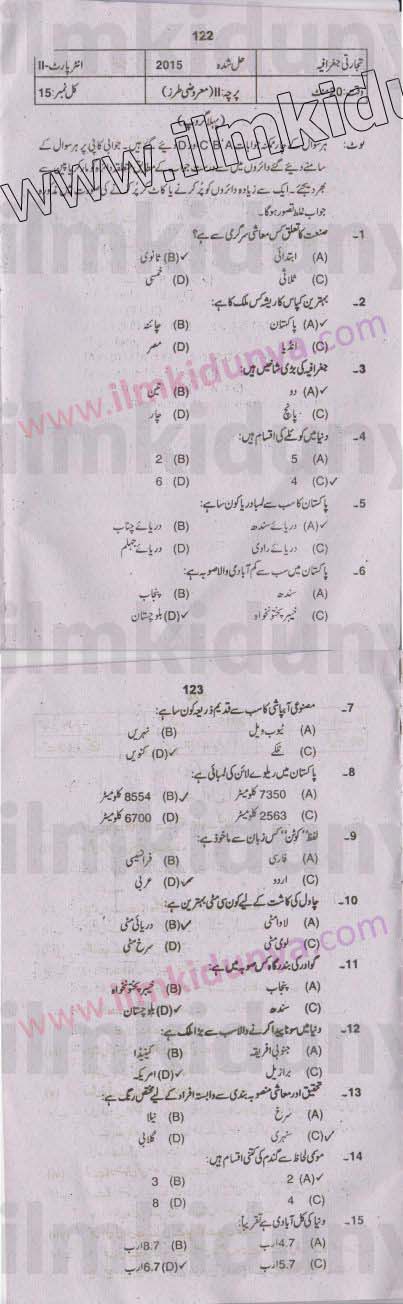 122
تجارتی جغرافیہ حل شدہ 2015 انٹر پارٹ-II
پرچہ: II (معروضی طرز) کل نمبر: 15
(پہلا گروپ)
www.ilmkidunya.com
نوٹ: ہر سوال کے چار ممکنہ جوابات A، B، C اور D دیئے گئے ہیں۔ جوابی کاپی پر ہر سوال کے
سامنے دیئے گئے دائروں میں سے
بھر دیجئے۔ ایک سے زیادہ دائروں کو پُر کرنے یا کاٹ کر پُر کرنے کی صورت میں مذکورہ
جواب غلط تصور ہو گا۔
1۔ صنعت کا تعلق کس معاشی سرگرمی سے ہے؟
(A) ابتدائی (B)✓ ثانوی
(C) ثلاثی (D) خمسی
2۔ بہترین کپاس کا ریشہ کس ملک کا ہے:
(A)✓ پاکستان (B) چائنہ
(C) انڈیا (D) مصر
3۔ جغرافیہ کی بڑی شاخیں ہیں:
(A)✓ دو (B) تین
(C) پانچ (D) چار
4۔ دنیا میں کوئلے کی اقسام ہیں:
(A) 5 (B) 2
(C)✓ 4 (D) 6
5۔ پاکستان کا سب سے لمبا دریا کون سا ہے:
(A)✓ دریائے سندھ (B) دریائے چناب
(C) دریائے راوی (D) دریائے جہلم
6۔ پاکستان میں سب سے کم آبادی والا صوبہ ہے:
(A) سندھ (B) پنجاب
(C) خیبر پختونخواہ (D)✓ بلوچستان
123
7۔ مصنوعی آبپاشی کا سب سے قدیم ذریعہ کون سا ہے:
(A) ٹیوب ویل (B) نہریں
(C) نلکے (D)✓ کنویں
8۔ پاکستان میں ریلوے لائن کی لمبائی ہے:
(A) 7350 کلومیٹر (B)✓ 8554 کلومیٹر
(C) 2563 کلومیٹر (D) 6700 کلومیٹر
9۔ لفظ "کوٹن" کس زبان سے ماخوذ ہے:
(A) فارسی (B) فرانسیسی
(C) اردو (D)✓ عربی
10۔ چاول کی کاشت کے لیے کون سی مٹی بہترین ہے:
(A) لاوا مٹی (B)✓ دریائی مٹی
(C) لوی مٹی (D) سرخ مٹی
11۔ گوادر کی بندرگاہ کس صوبہ میں ہے:
(A) پنجاب (B) خیبر پختونخواہ
(C) سندھ (D)✓ بلوچستان
12۔ دنیا میں سونا پیدا کرنے والا سب سے بڑا ملک ہے:
(A) جنوبی افریقہ (B) کینیڈا
(C) برازیل (D)✓ امریکہ
13۔ تحقیق اور معاشی منصوبہ بندی سے وابستہ افراد کے لیے مختص رنگ ہے:
(A) سرخ (B) نیلا
(C)✓ سنہری (D) گلابی
14۔ موسمی لحاظ سے گندم کی کتنی اقسام ہیں:
(A)✓ 2 (B) 3
(C) 4 (D) 8
15۔ دنیا کی کل آبادی ہے تقریباً:
(A) 4.7 ارب (B) 8.7 ارب
(C) 5.7 ارب (D)✓ 6.7 ارب